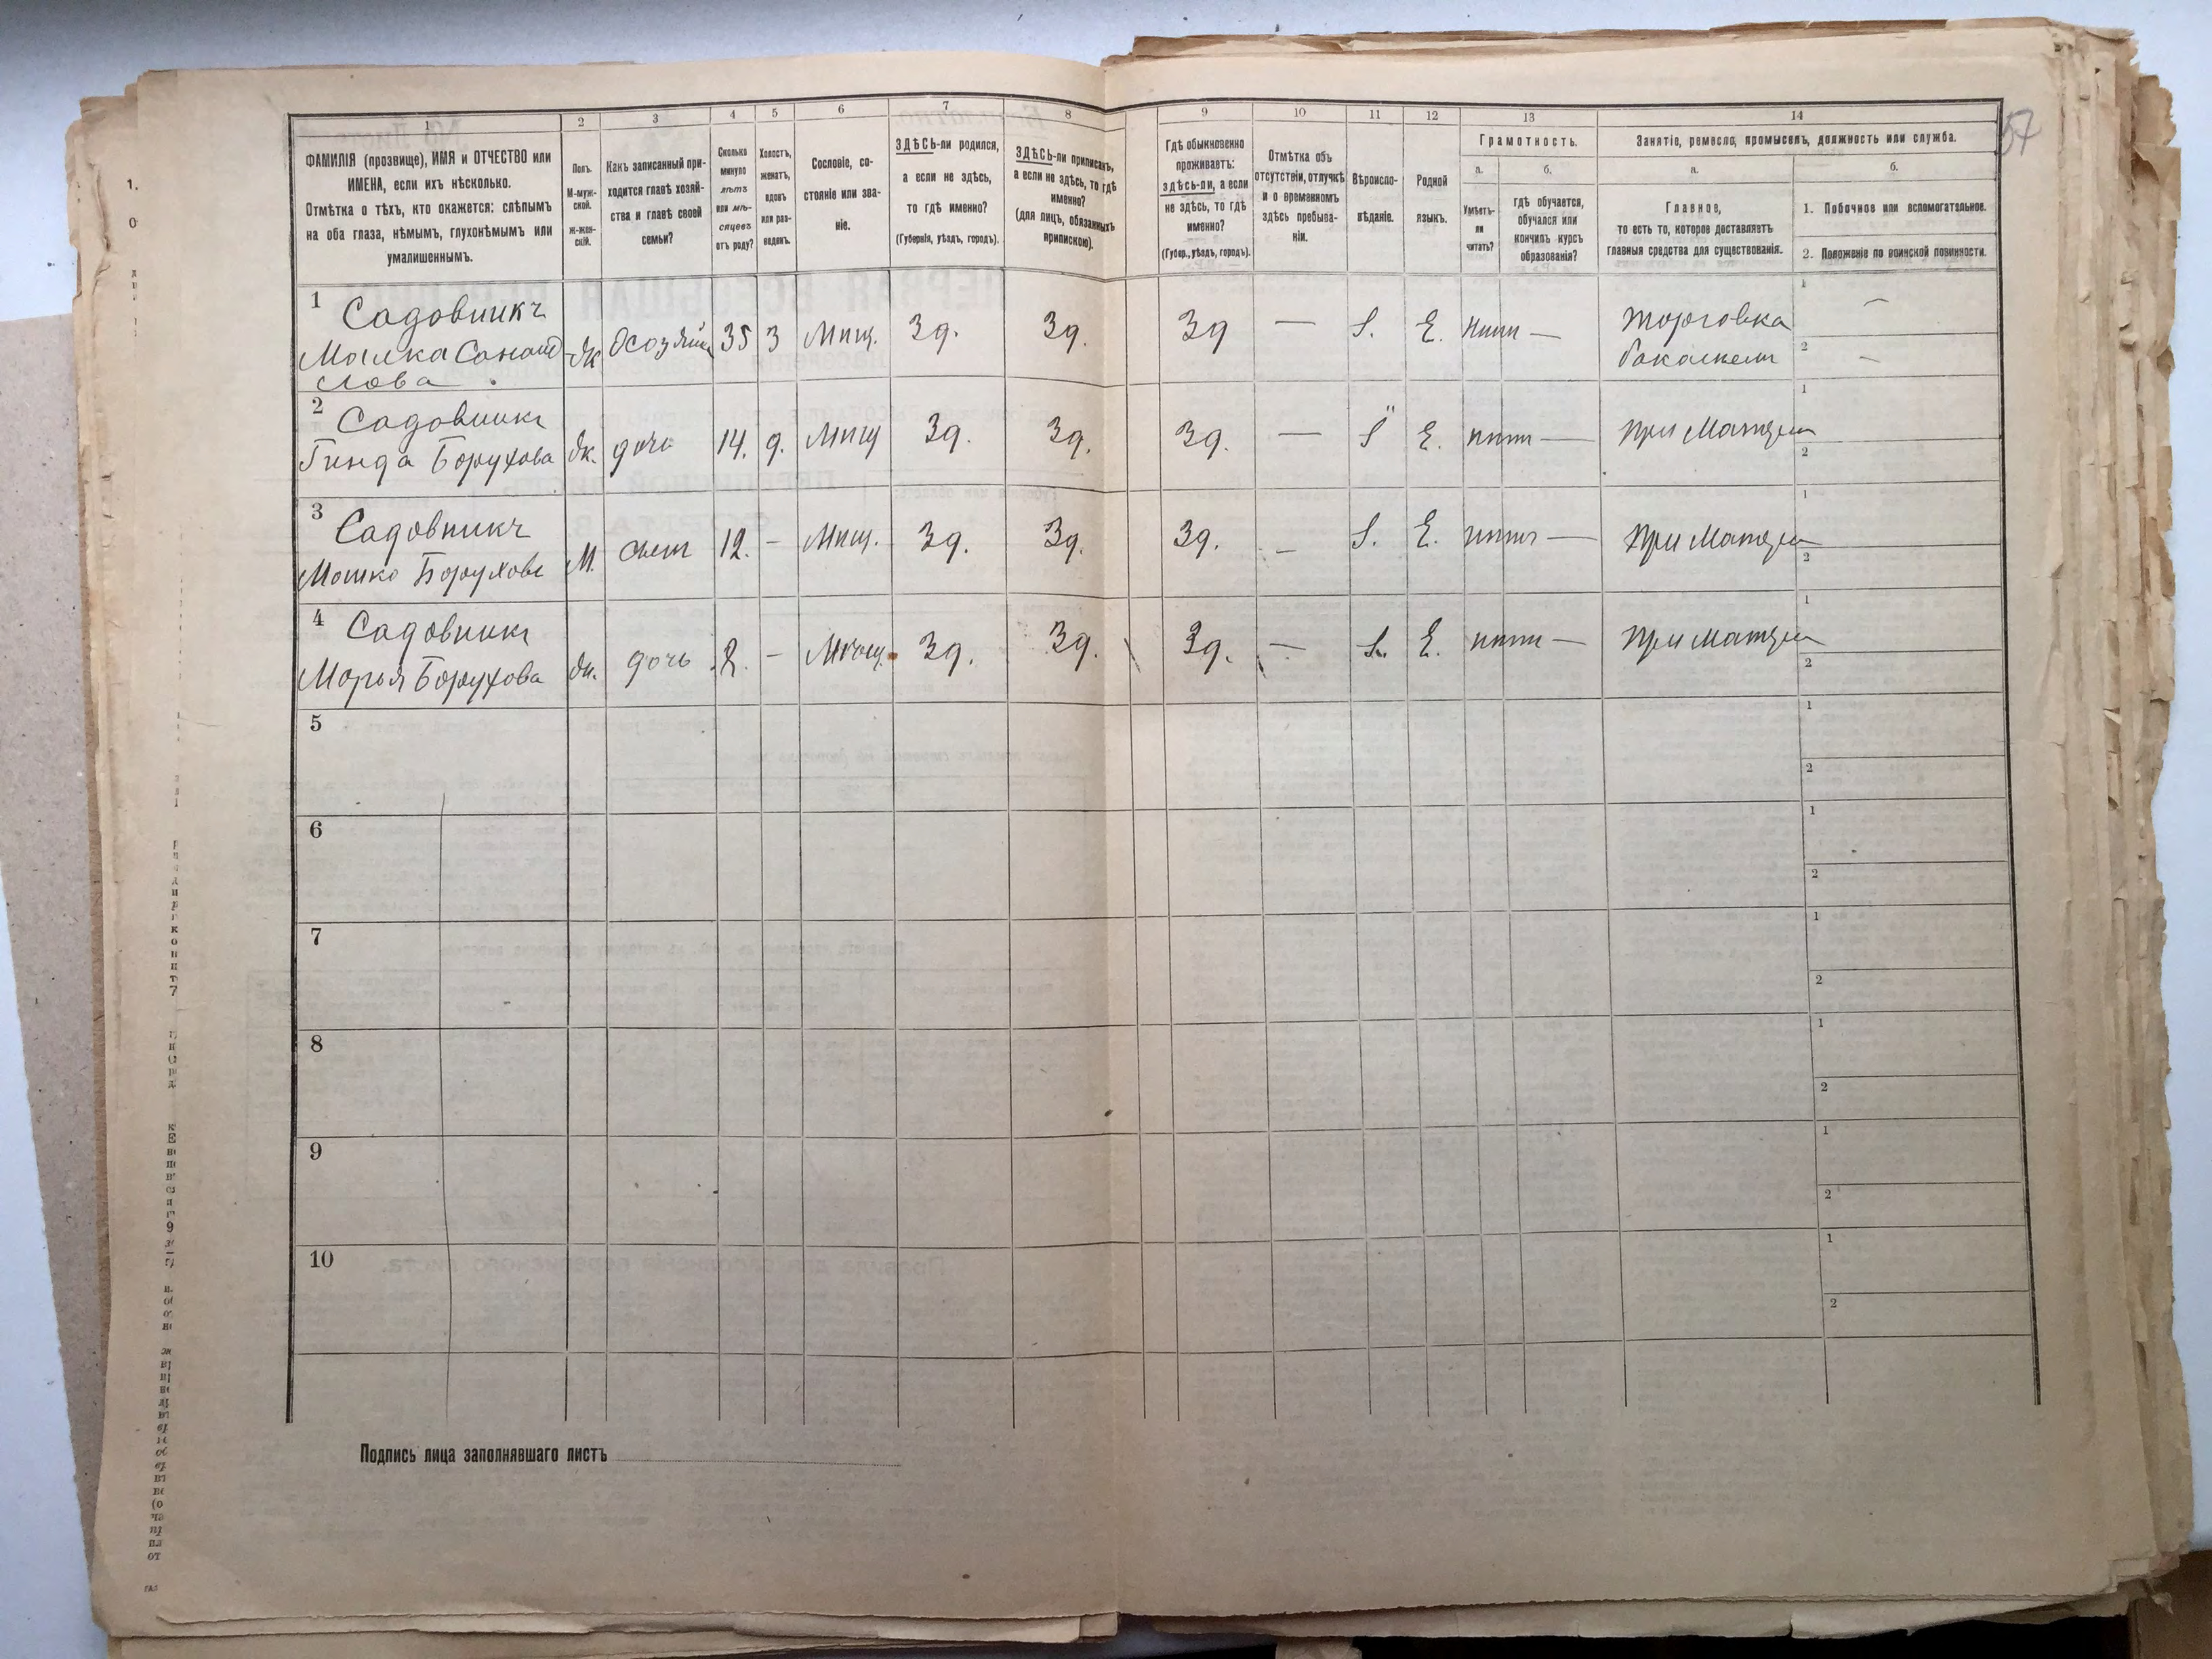 1
ФАМИЛІЯ (прозвище), ИМЯ и ОТЧЕСТВО или
ИМЕНА, если ихъ нѣсколько.
Отмѣтка о тѣхъ, кто окажется: слѣпымъ
на оба глаза, нѣмымъ, глухонѣмымъ или
умалишеннымъ.
2
Полъ.
М-муж-
ской.
ж-жен-
скій.
3
Какъ записанный при-
ходится главѣ хозяй-
ства и главѣ своей
семьи?
4
Сколько
минуло
лѣтъ
или мѣ-
сяцевъ
отъ роду?
5
Холостъ,
женатъ,
вдовъ
или раз-
веденъ.
6
Сословіе, со-
стояніе или зва-
ніе.
7
ЗДѢСЬ-ли родился,
а если не здѣсь,
то гдѣ именно?
(Губернія, уѣздъ, городъ).
8
ЗДѢСЬ-ли приписанъ,
а если не здѣсь, то гдѣ
именно?
(для лицъ, обязанныхъ
припискою).
9
Гдѣ обыкновенно
проживаетъ:
здѣсь-ли, а если
не здѣсь, то гдѣ
именно?
(Губер., уѣздъ, городъ).
10
Отмѣтка объ
отсутствіи, отлучкѣ
и о временномъ
здѣсь пребыва-
ніи.
11
Вѣроиспо-
вѣданіе.
12
Родной
языкъ.
13
Грамотность.
а.
Умѣетъ-
ли
читать?
б.
гдѣ обучается,
обучался или
кончилъ курсъ
образованія?
14
Занятіе, ремесло, промыселъ, должность или служба.
а.
Главное,
то есть то, которое доставляетъ
главныя средства для существованія.
б.
1. Побочное или вспомогательное.
2. Положеніе по воинской повинности.
57
1 Садовникъ
Малка
слова
ж 35 З Мищ. Зд. Зд. Зд — Е. нит —
торговка
бакалеей
1 —
2 —
2 Садовникъ
Гинда Борухова
ж. дочь 14. д. Мищ Зд. Зд. Зд. — Е. нит — при Матери
1
2
3 Садовникъ
Мошко Боруховъ
М. сын 12. – Мищ. Зд. Зд. Зд. – Е. нит — при Матери
1
2
4 Садовникъ
Марья Борухова
ж. дочь 2. – Мищ. Зд. Зд. Зд. — Е. нит — при Матери
1
2
5
1
2
6
1
2
7
1
2
8
1
2
9
1
2
10
1
2
Подпись лица заполнявшаго листъ